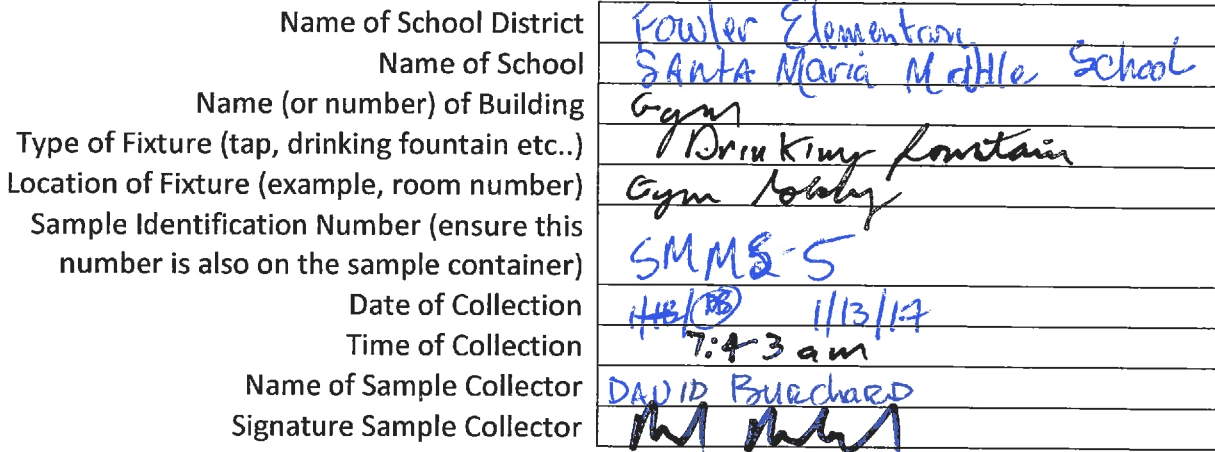 Name of School District Fowler Elementary
Name of School SANTA Maria Middle School
Name (or number) of Building Gym
Type of Fixture (tap, drinking fountain etc..) Drinking fountain
Location of Fixture (example, room number) Gym lobby
Sample Identification Number (ensure this
number is also on the sample container) SMMS-5
Date of Collection 1/13/17
Time of Collection 7:43 am
Name of Sample Collector DAVID BURCHARD
Signature Sample Collector